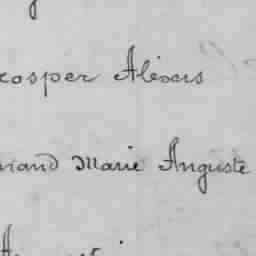 rosper Alexis
nand Marie Auguste